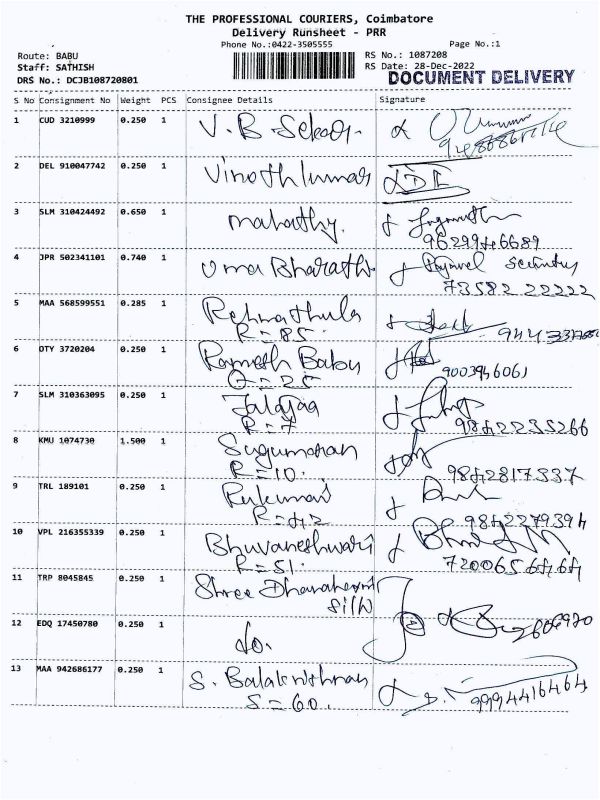 THE PROFESSIONAL COURIERS, Coimbatore
Delivery Runsheet - PRR
Phone No.:0422-3505555
Page No.:1
Route: BABU
RS No.: 1087208
Staff: SATHISH
RS Date: 28-Dec-2022
DRS No.: DCJB108720801
DOCUMENT DELIVERY
S No Consignment No Weight PCS Consignee Details Signature
1 CUD 3210999 0.250 1 V. B. Sekar
2 DEL 910047742 0.250 1 Vinothkumar
3 SLM 310424492 0.650 1 Mahathy.
4 JPR 502341101 0.740 1 Uma Bharathi Security
73582 22222
5 MAA 568599551 0.285 1 Rehmathula
R = 85.
6 OTY 3720204 0.250 1 Ramesh Babu
9003946061
7 SLM 310363095 0.250 1
R = 7
8 KMU 1074730 1.500 1 Sugumaran
R = 10. 9842817337
9 TRL 189101 0.250 1 Rukumani
R = 42 9842279394
10 VPL 216355339 0.250 1 Bhuvaneshwari
R = 51. 7200656464
11 TRP 8045845 0.250 1 Shree
silk
12 EDQ 17450780 0.250 1 do.
13 MAA 942686177 0.250 1 S. Balakrithnan
S = 60. 9994416464